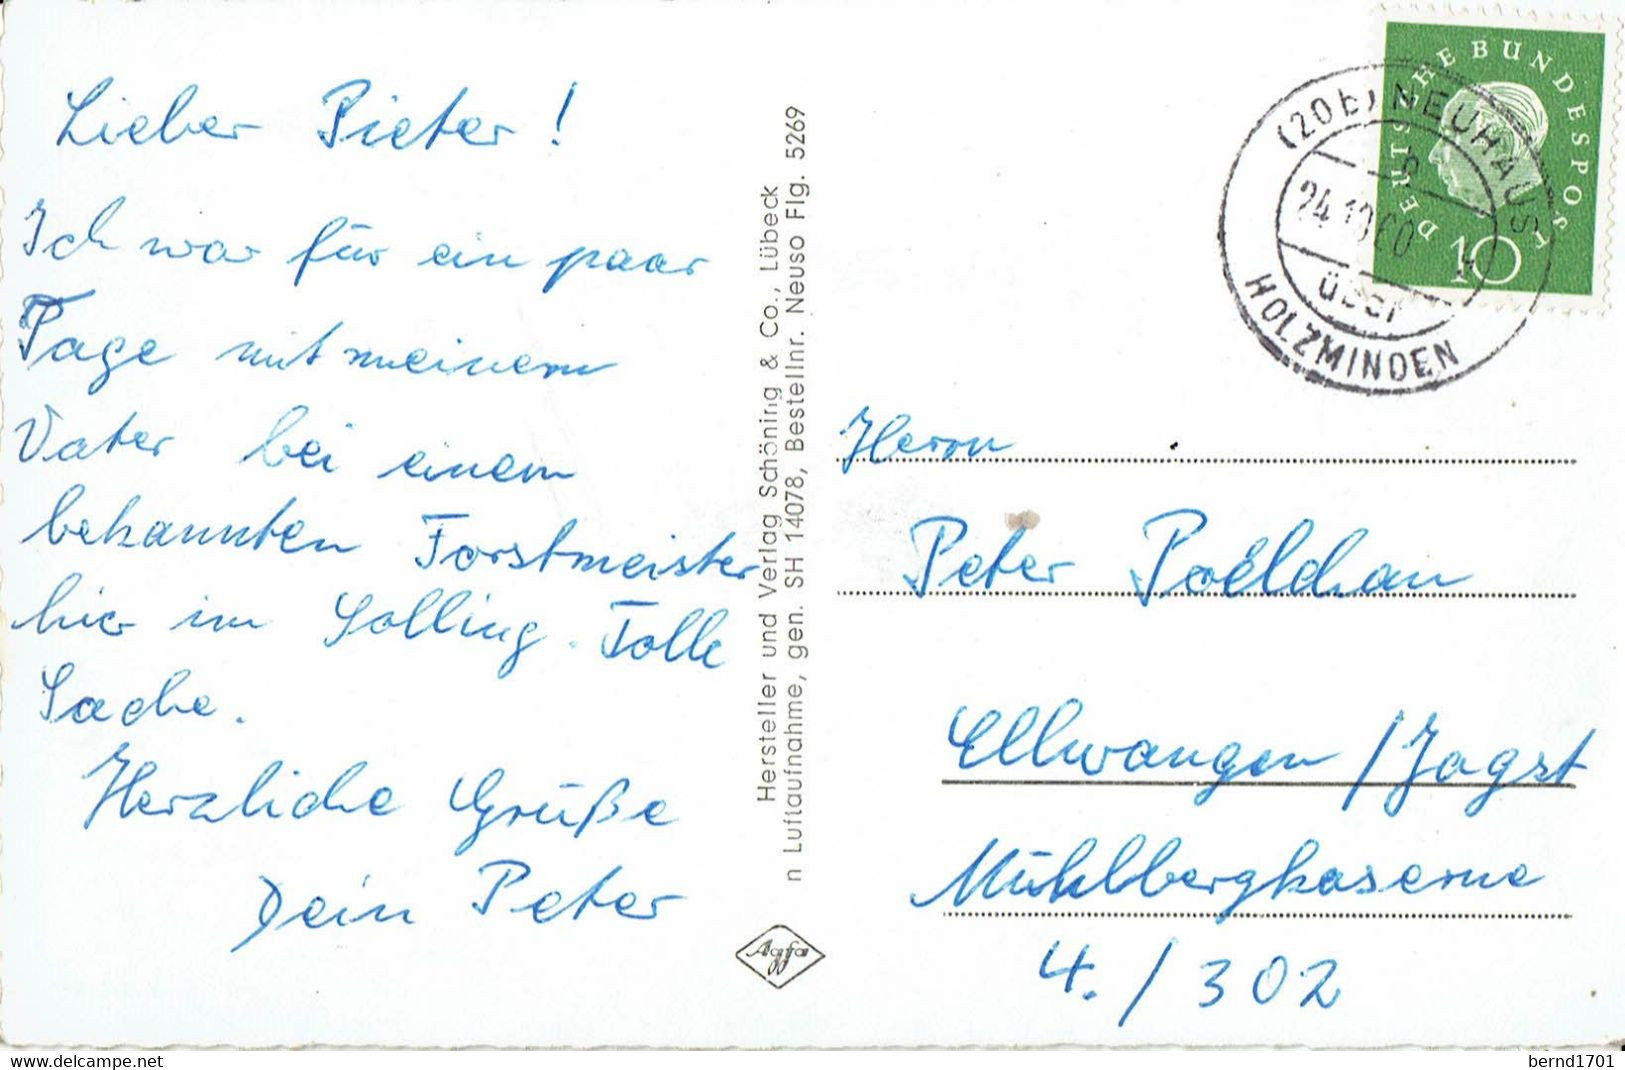 Lieber Pieter!
Ich war für ein paar
Tage mit meinem
Vater bei einem
bekannten Forstmeister
hier im Solling. Tolle
Sache.
Herzliche Grüße
Dein Peter
Hersteller und Verlag Schöning & Co., Lübeck
n Luftaufnahme, gen. SH 14078, Bestellnr. Neuso Flg. 5269
Agfa
DEUTSCHE BUNDESPOST
10
(20b) NEUHAUS
24.10.60
über
HOLZMINDEN
Herrn
Peter Poelchau
Ellwangen/Jagst
Mühlbergkaserne
4./302
www.delcampe.net
bernd1701